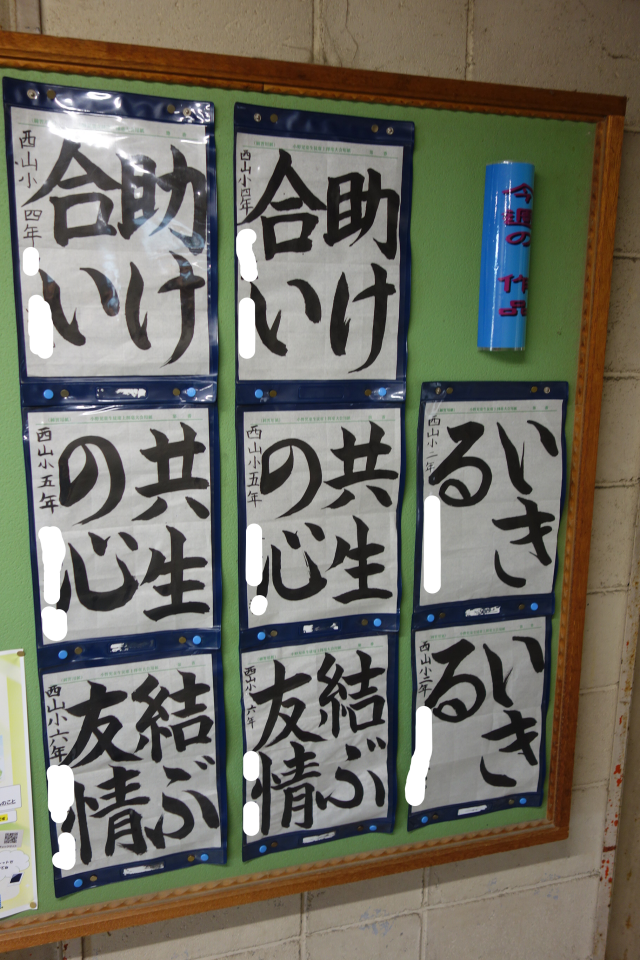 今週の
作品
助け
合い
西山小四年
助け
合い
西山小四年
いき
る
西山小
共生
の心
西山小五年
共生
の心
西山小五年
いき
る
西山小
結ぶ
友情
西山小六年
結ぶ
友情
西山小六年
のこと